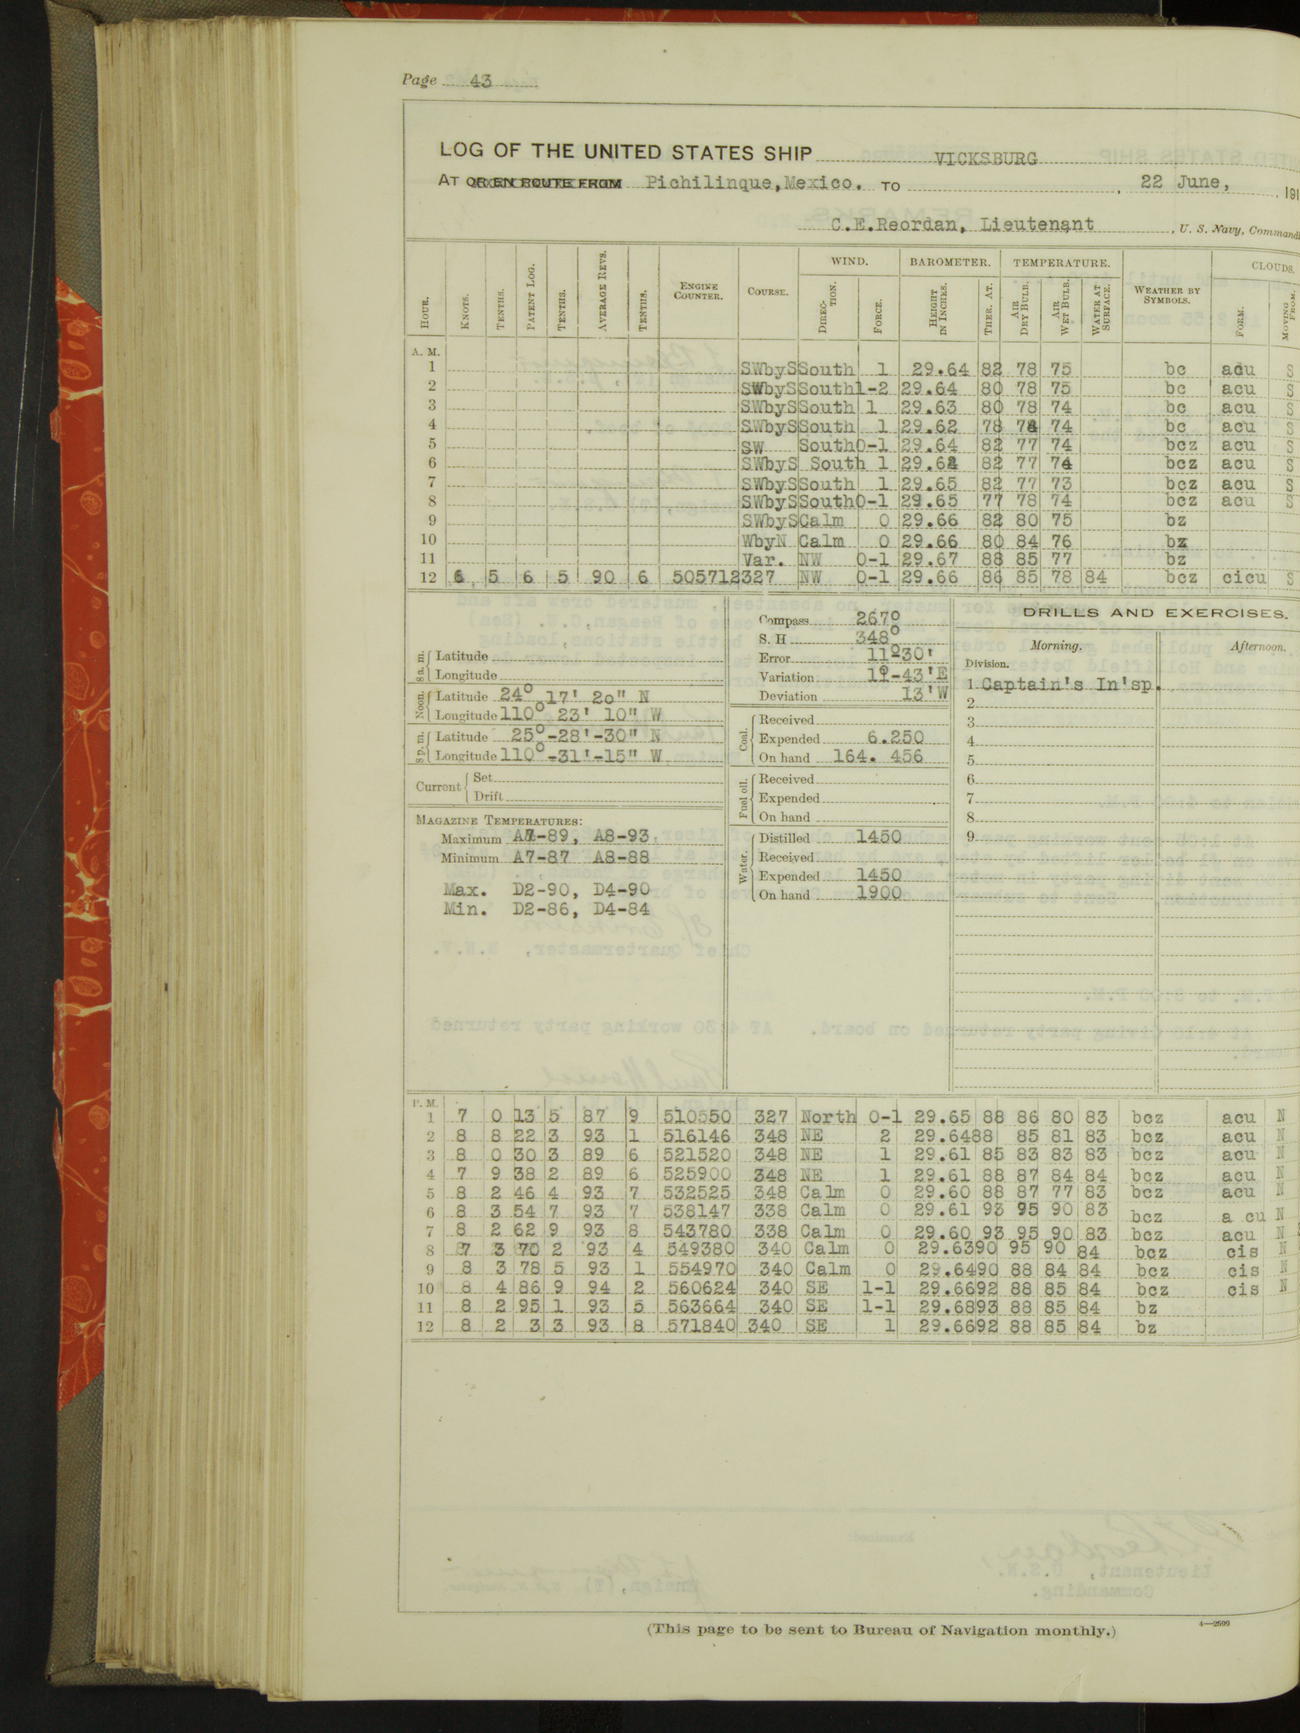 Page 43
LOG OF THE UNITED STATES SHIP VICKSBURG
AT OR EN ROUTE FROM Pichilinque,Mexico. TO , 22 June, , 191
C.E.Reordan, Lieutenant , U. S. Navy, Commandi
WIND. BAROMETER. TEMPERATURE. CLOUDS.
HOUR. KNOTS. TENTHS. PATENT LOG. TENTHS. AVERAGE REVS. TENTHS. ENGINE COUNTER. COURSE. DIRECTION. FORCE. HEIGHT IN INCHES. THER. AT. AIR DRY BULB. AIR WET BULB. WATER AT SURFACE. WEATHER BY SYMBOLS. FORM. MOVING FROM.
A. M.
1 SWbyS South 1 29.64 82 78 75 bc acu S
2 SWbyS South 1-2 29.64 80 78 75 bc acu S
3 SWbyS South 1 29.63 80 78 74 bc acu S
4 SWbyS South 1 29.62 78 78 74 bc acu S
5 SW South 0-1 29.64 82 77 74 bcz acu S
6 SWbyS South 1 29.62 82 77 74 bcz acu S
7 SWbyS South 1 29.65 82 77 73 bcz acu S
8 SWbyS South 0-1 29.65 77 78 74 bcz acu S
9 SWbyS Calm 0 29.66 82 80 75 bz
10 WbyN Calm 0 29.66 80 84 76 bz
11 Var. NW 0-1 29.67 88 85 77 bz
12 6 5 6 5 90 6 505712 327 NW 0-1 29.66 86 85 78 84 bcz cicu S
8 a. m. Latitude
Longitude
Noon. Latitude 24° 17' 20" N
Longitude 110° 23' 10" W
8 p. m. Latitude 25°-28'-30" N
Longitude 110°-31'-15" W
Current Set
Drift
MAGAZINE TEMPERATURES:
Maximum A7-89, A8-93
Minimum A7-87 A8-88
Max. D2-90, D4-90
Min. D2-86, D4-84
Compass 267°
S. H 348°
Error 11°30'
Variation 11°-43'E
Deviation 13'W
Coal. Received
Expended 6.250
On hand 164. 456
Fuel oil. Received
Expended
On hand
Water. Distilled 1450
Received
Expended 1450
On hand 1900
DRILLS AND EXERCISES.
Morning. Afternoon.
Division.
1 Captain's In'sp.
2
3
4
5
6
7
8
9
P. M.
1 7 0 13 5 87 9 510550 327 North 0-1 29.65 88 86 80 83 bcz acu N
2 8 8 22 3 93 1 516146 348 NE 2 29.64 88 85 81 83 bcz acu N
3 8 0 30 3 89 6 521520 348 NE 1 29.61 85 83 83 83 bcz acu N
4 7 9 38 2 89 6 525900 348 NE 1 29.61 88 87 84 84 bcz acu N
5 8 2 46 4 93 7 532525 348 Calm 0 29.60 88 87 77 83 bcz acu N
6 8 3 54 7 93 7 538147 338 Calm 0 29.61 93 95 90 83 bcz a cu N
7 8 2 62 9 93 8 543780 338 Calm 0 29.60 93 95 90 83 bcz acu N
8 7 3 70 2 93 4 549380 340 Calm 0 29.63 90 95 90 84 bcz cis N
9 8 3 78 5 93 1 554970 340 Calm 0 29.64 90 88 84 84 bcz cis N
10 8 4 86 9 94 2 560624 340 SE 1-1 29.66 92 88 85 84 bcz cis N
11 8 2 95 1 93 5 563664 340 SE 1-1 29.68 93 88 85 84 bz
12 8 2 3 3 93 8 571840 340 SE 1 29.66 92 88 85 84 bz
(This page to be sent to Bureau of Navigation monthly.)
4—2599